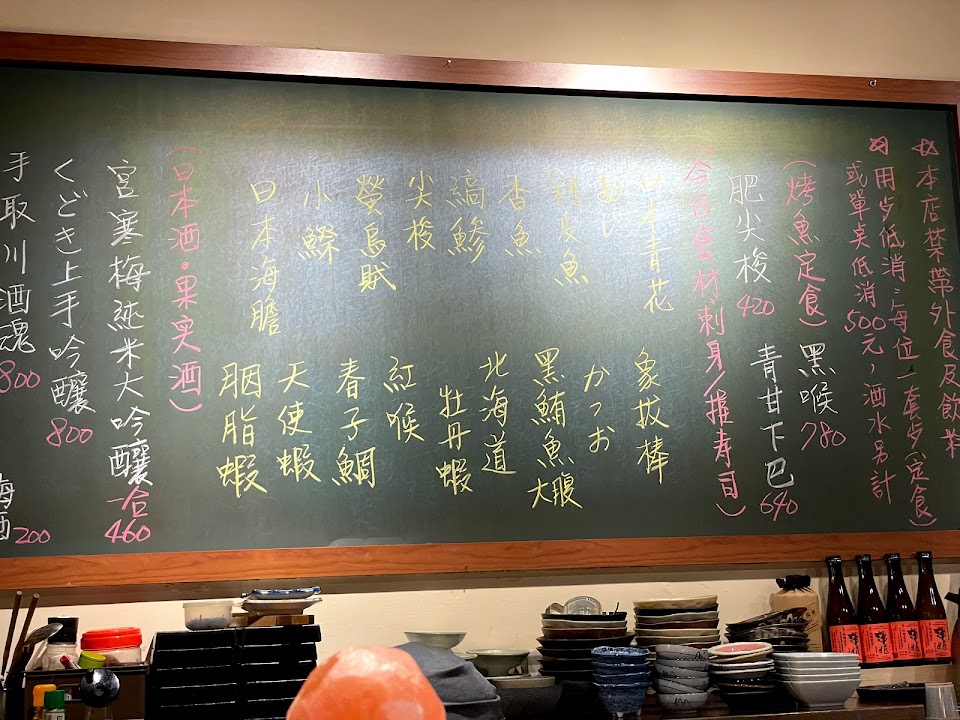 ☆本店葉禁外食及飲料
☆用步低消:每位一套步(定食)
或單桌低消500元,酒水另計
(烤魚定食)
黑喉780
肥尖梭420
青甘下巴640
(今日食材:刺身/握寿司)
日本青花
象拔棒
かつお
剝皮魚
黑鮪魚大腹
香魚
北海道
牡丹蝦
縞鰺
尖梭
紅喉
螢烏賊
春子鯛
小鰶
天使蝦
日本海膽
胭脂蝦
(日本酒・果実酒)
宮寒梅純米大吟釀一合460
くどき上手吟釀800
手取川酒魂800
梅酒200